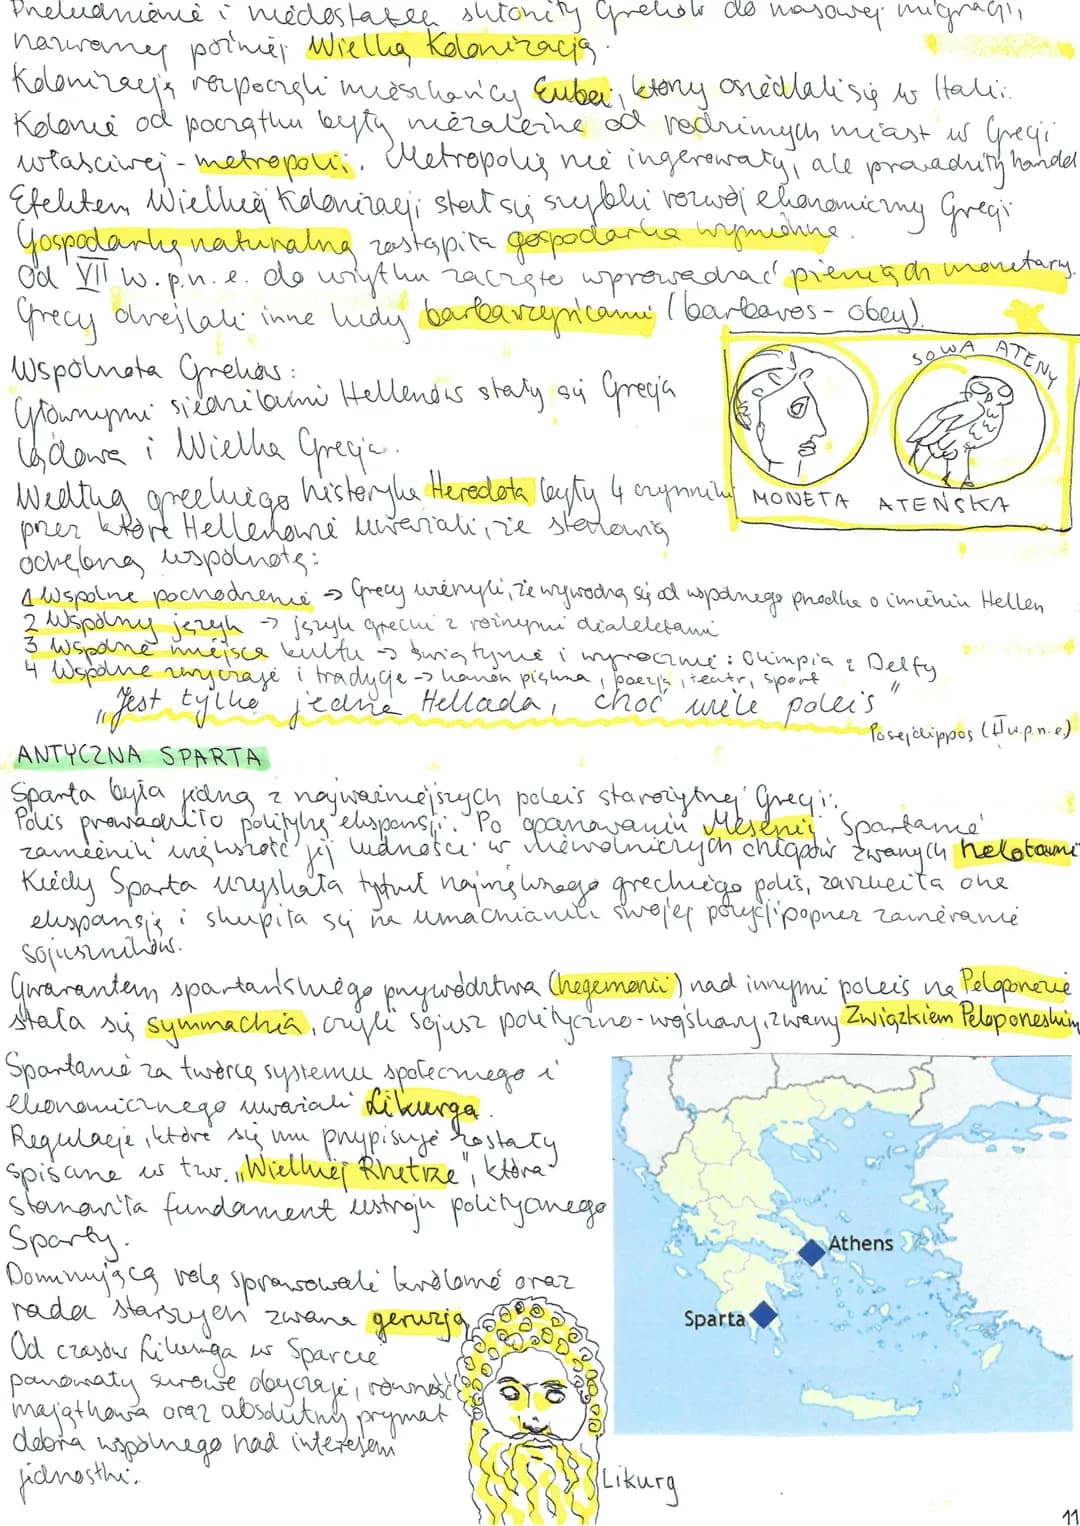 Przeludnienie i niedostatek skłoniły Greków do masowej migracji,
nazwanej później Wielką Kolonizacją.
Kolonizację rozpoczęli mieszkańcy Eubei, którzy osiedlali się w Italii.
Kolonie od początku były niezależne od rodzimych miast w Grecji
właściwej - metropolii. Metropolie nie ingerowały, ale prowadziły handel
Efektem Wielkiej Kolonizacji stał się szybki rozwój ekonomiczny Grecji
Gospodarkę naturalną zastąpiła gospodarka wymienna.
Od VII w. p.n.e. do użytku zaczęto wprowadzać pieniądz monetarny.
Grecy określali inne ludy barbarzyńcami (barbaros - obcy).
SOWA ATENY
MONETA ATEŃSKA
Wspólnota Greków:
Głównymi siedzibami Hellenów stały się Grecja
lądowa i Wielka Grecja.
Według greckiego historyka Herodota były 4 czynniki
przez które Hellenowie uważali, że stanowią
odrębną wspólnotę:
1 Wspólne pochodzenie → Grecy wierzyli, że wywodzą się od wspólnego przodka o imieniu Hellen
2 Wspólny język → język grecki z różnymi dialektami
3 Wspólne miejsca kultu → świątynie i wyrocznie: Olimpia i Delfy
4 Wspólne zwyczaje i tradycje → kanon piękna, poezja, teatr, sport
„Jest tylko jedna Hellada, choć wiele poleis"
Posejdippos (II w.p.n.e)
ANTYCZNA SPARTA
Sparta była jedną z najważniejszych poleis starożytnej Grecji.
Polis prowadziło politykę ekspansji. Po opanowaniu Mesenii, Spartanie
zamienili większość jej ludności w niewolniczych chłopów zwanych helotami
Kiedy Sparta uzyskała tytuł największego greckiego polis, zarzuciła ona
ekspansję i skupiła się na umacnianiu swojej pozycji poprzez zawieranie
sojuszników.
Gwarantem spartańskiego przywództwa (hegemonii) nad innymi poleis na Peloponezie
stała się symmachia, czyli sojusz polityczno-wojskowy, zwany Związkiem Peloponeskim
Spartanie za twórcę systemu społecznego i
ekonomicznego uważali Likurga.
Regulacje, które się mu przypisuje zostały
spisane w tzw. „Wielkiej Rhetrze", która
stanowiła fundament ustroju politycznego
Sparty.
Dominującą rolę sprawowali królowie oraz
rada starszych zwana geruzją
Od czasów Likurga w Sparcie
panowały surowe obyczaje, równość
majątkowa oraz absolutny prymat
dobra wspólnego nad interesem
jednostki.
Likurg
Athens
Sparta
11